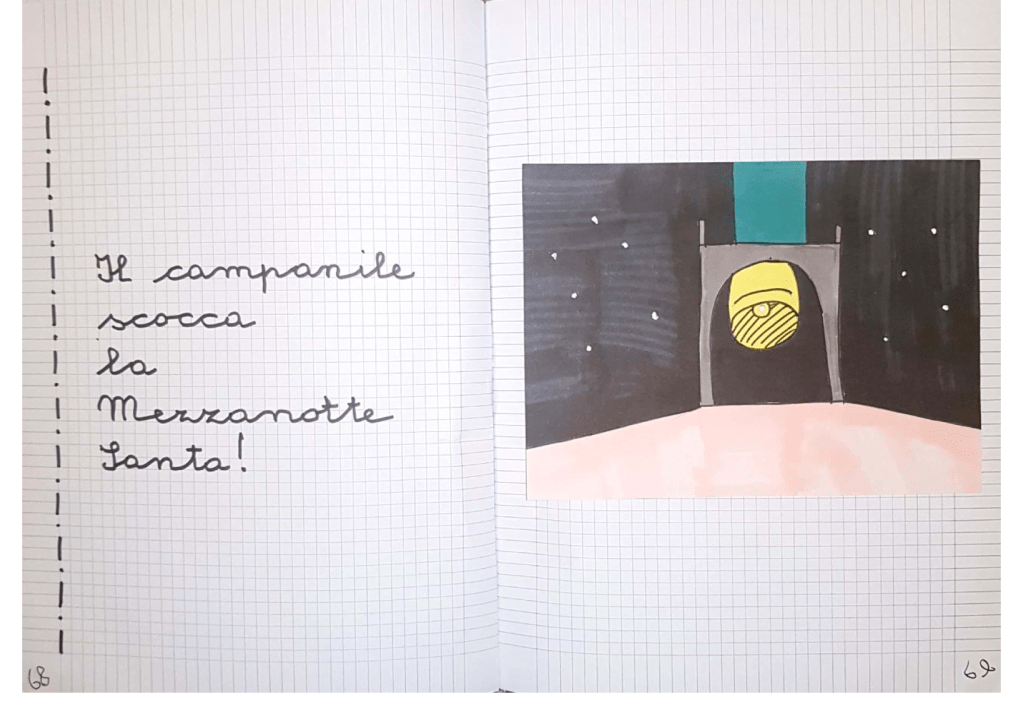 Il campanile
scocca
la
Mezzanotte
Santa!
68
69